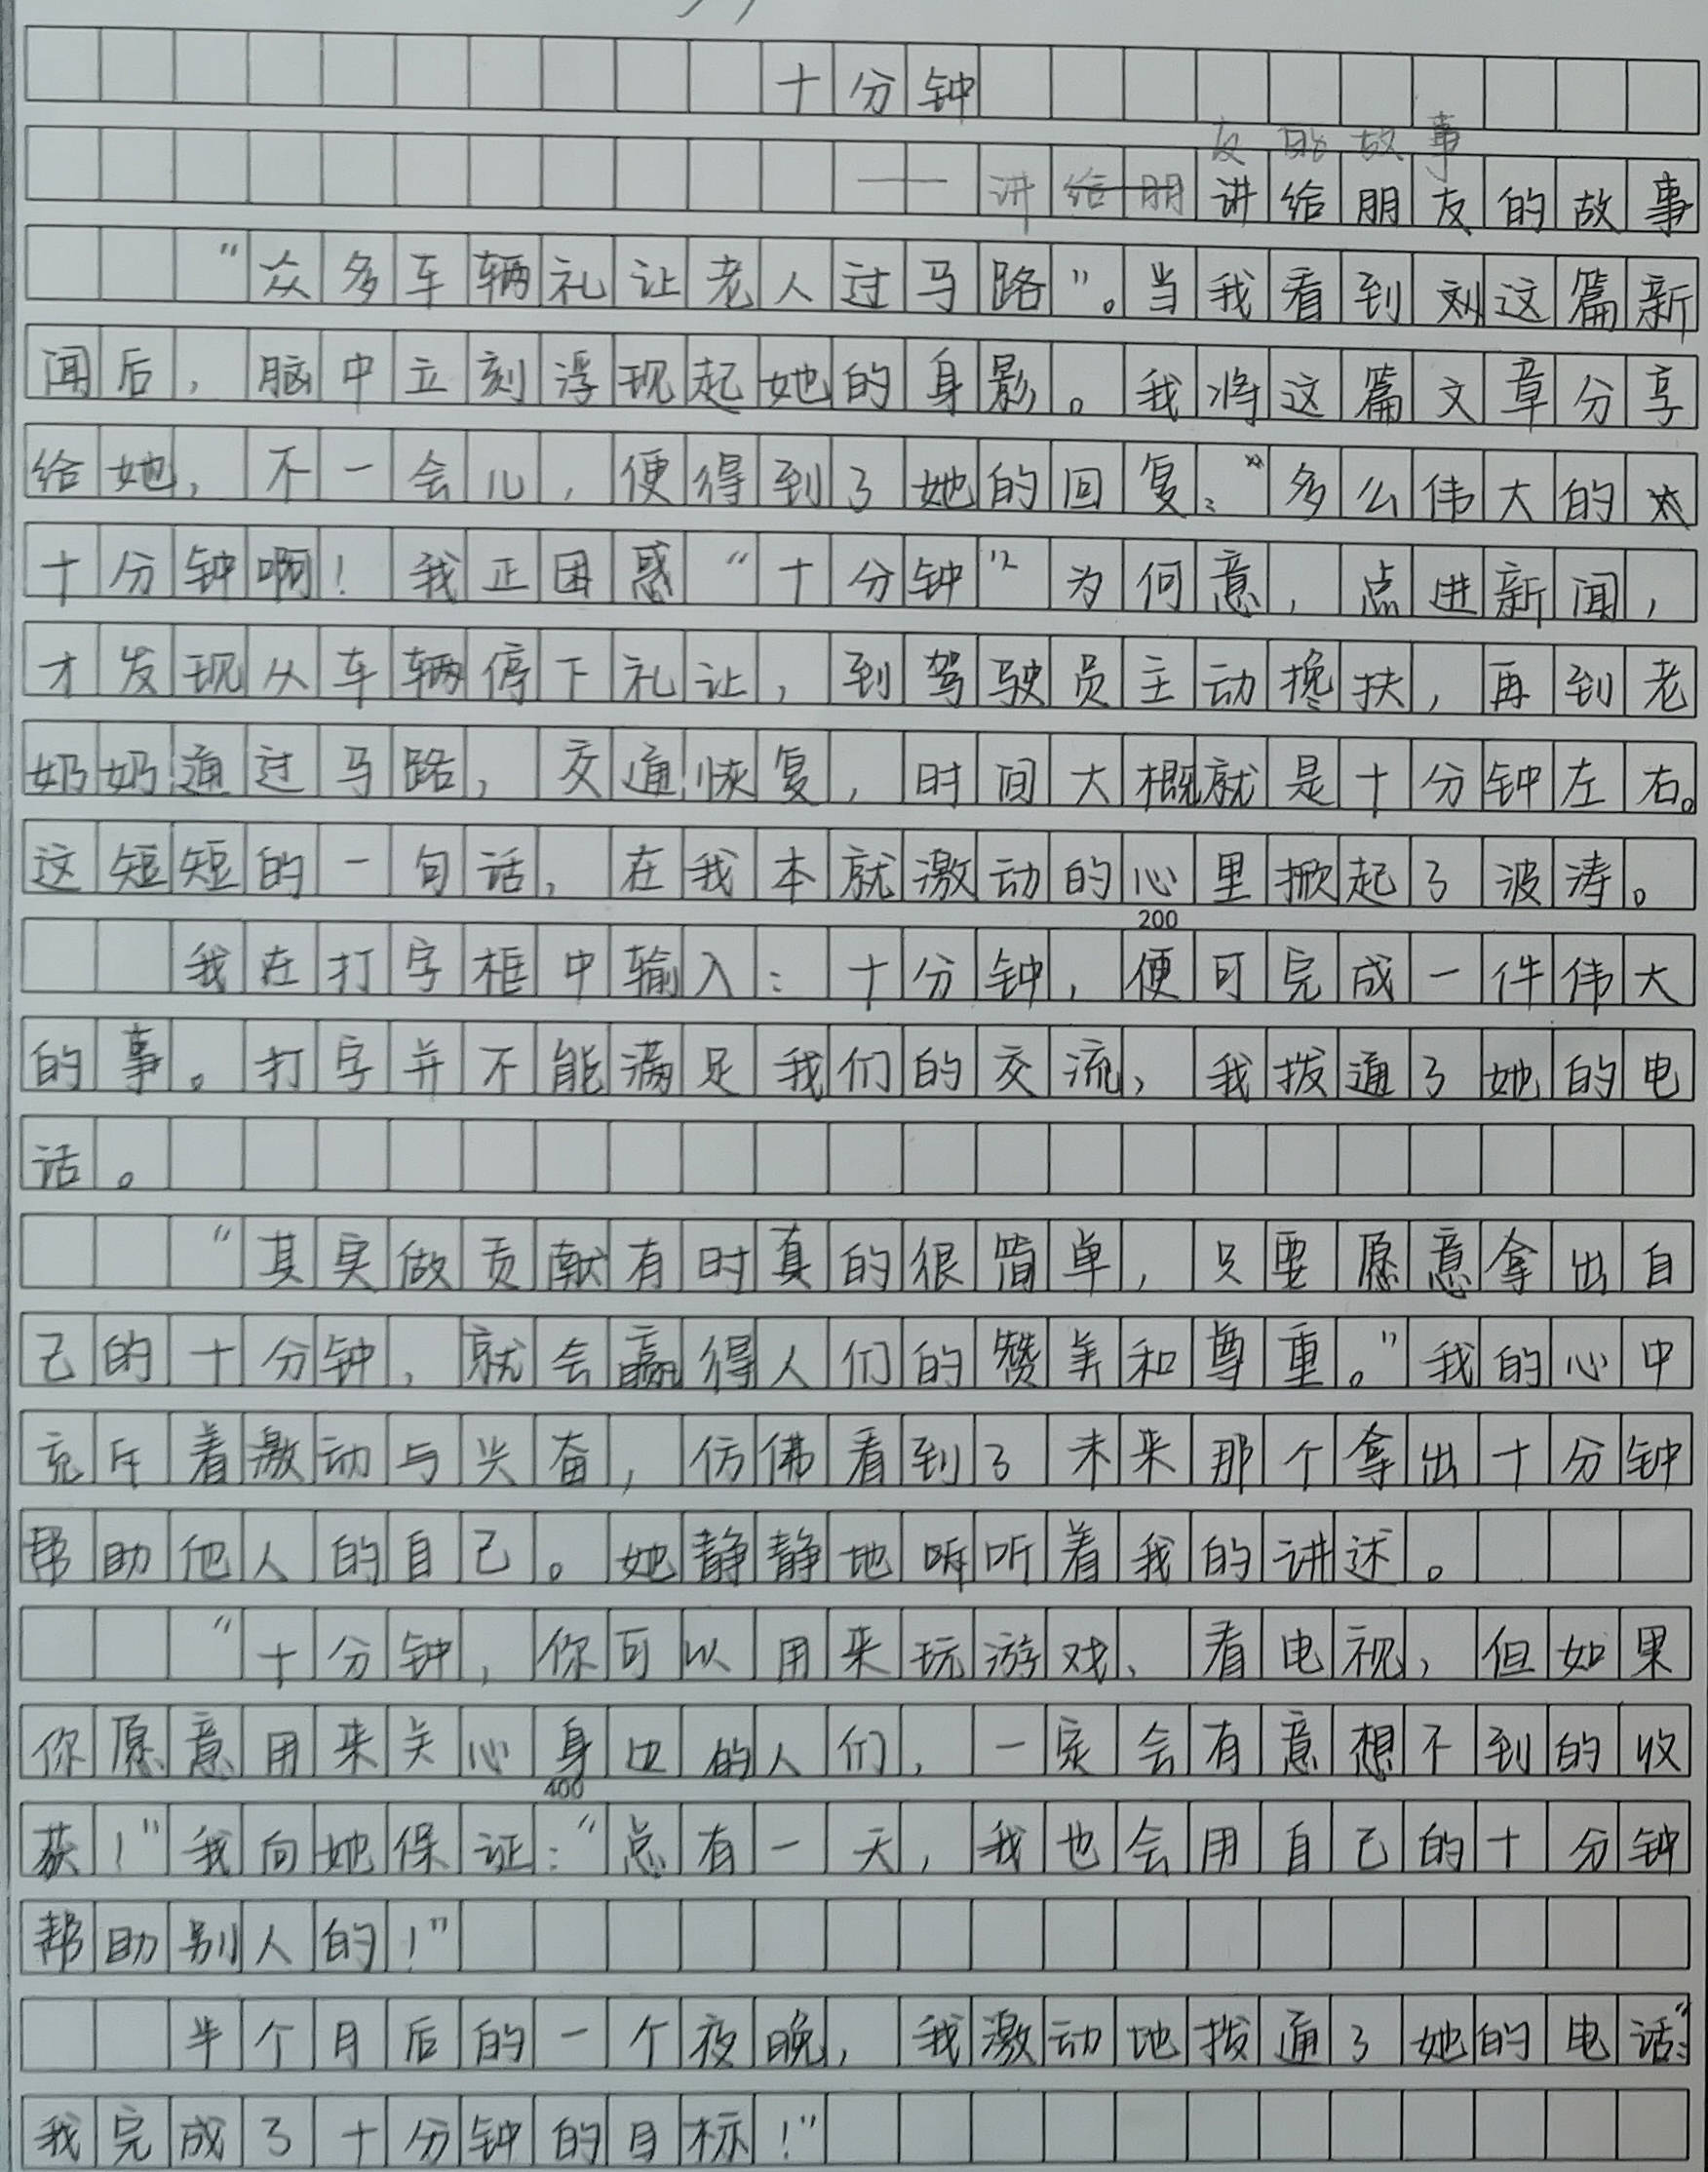 十分钟
友的故事
——讲给朋讲给朋友的故事
“众多车辆礼让老人过马路”。当我看到刘这篇新
闻后，脑中立刻浮现起她的身影。我将这篇文章分享
给她，不一会儿，便得到了她的回复：“多么伟大的
十分钟啊！我正困惑“十分钟”为何意，点进新闻，
才发现从车辆停下礼让，到驾驶员主动搀扶，再到老
奶奶通过马路，交通恢复，时间大概就是十分钟左右。
这短短的一句话，在我本就激动的心里掀起了波涛。
200
我在打字框中输入：十分钟，便可完成一件伟大
的事。打字并不能满足我们的交流，我拨通了她的电
话。
“其实做贡献有时真的很简单，只要愿意拿出自
己的十分钟，就会赢得人们的赞美和尊重。”我的心中
充斥着激动与兴奋，仿佛看到了未来那个拿出十分钟
帮助他人的自己。她静静地听听着我的讲述。
“十分钟，你可以用来玩游戏、看电视，但如果
你愿意用来关心身边的人们，一定会有意想不到的收
400
获！”我向她保证：“总有一天，我也会用自己的十分钟
帮助别人的！”
半个月后的一个夜晚，我激动地拨通了她的电话：“
我完成了十分钟的目标！”